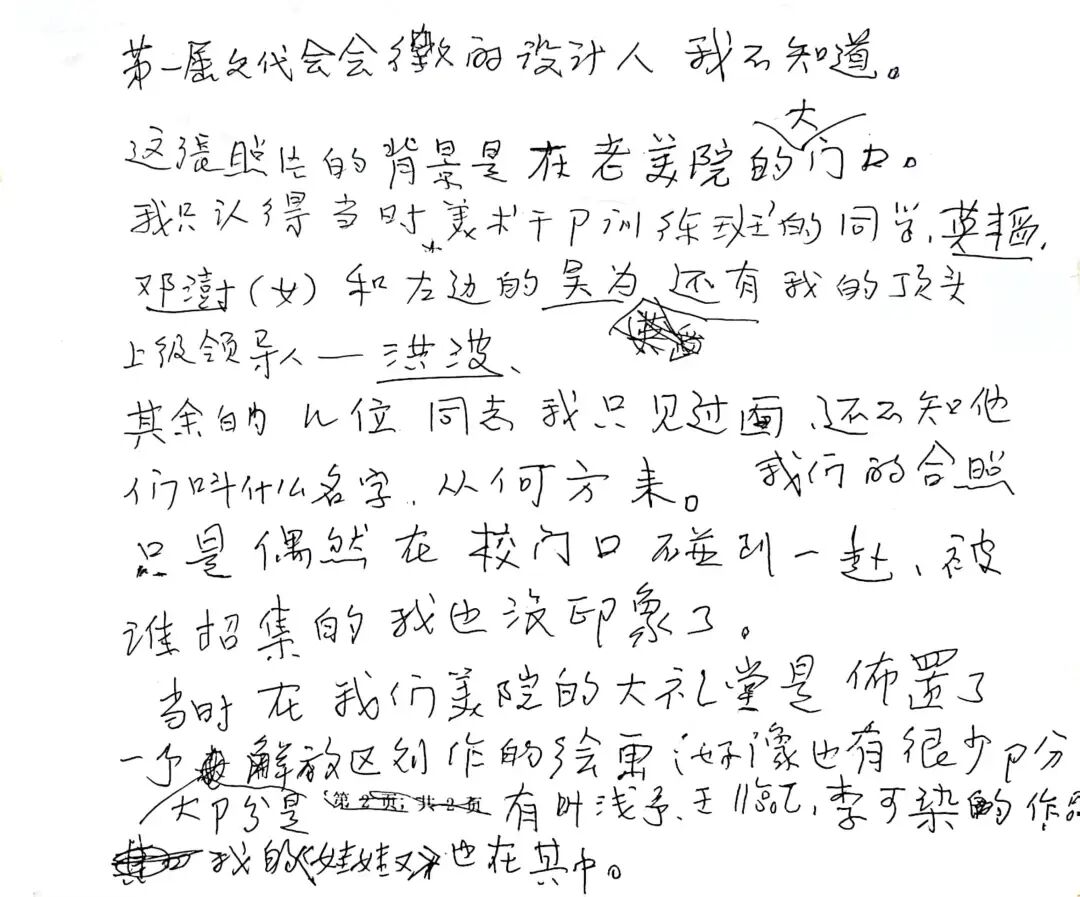 第一届文代会会徽的设计人 我不知道。
这張照片的背景是在老美院的大门口。
我只认得当时美术干卩训练班的同学、莫
邓澍(女)和左边的吴为 还有我的顶头
上级领导人—洪波、
其余的几位同志我只见过面、还不知他
们叫什么名字、从何方来。 我们的合照
只是偶然在校门口碰到一起、被
谁招集的我也没印象了。
当时在我们美院的大礼堂是佈置了
一个解放区创作的绘画 好像也有很少卩分
大卩分是 第2页,共2页 有叶浅予、王 李可染的作品
我的《娃娃戏》也在其中。